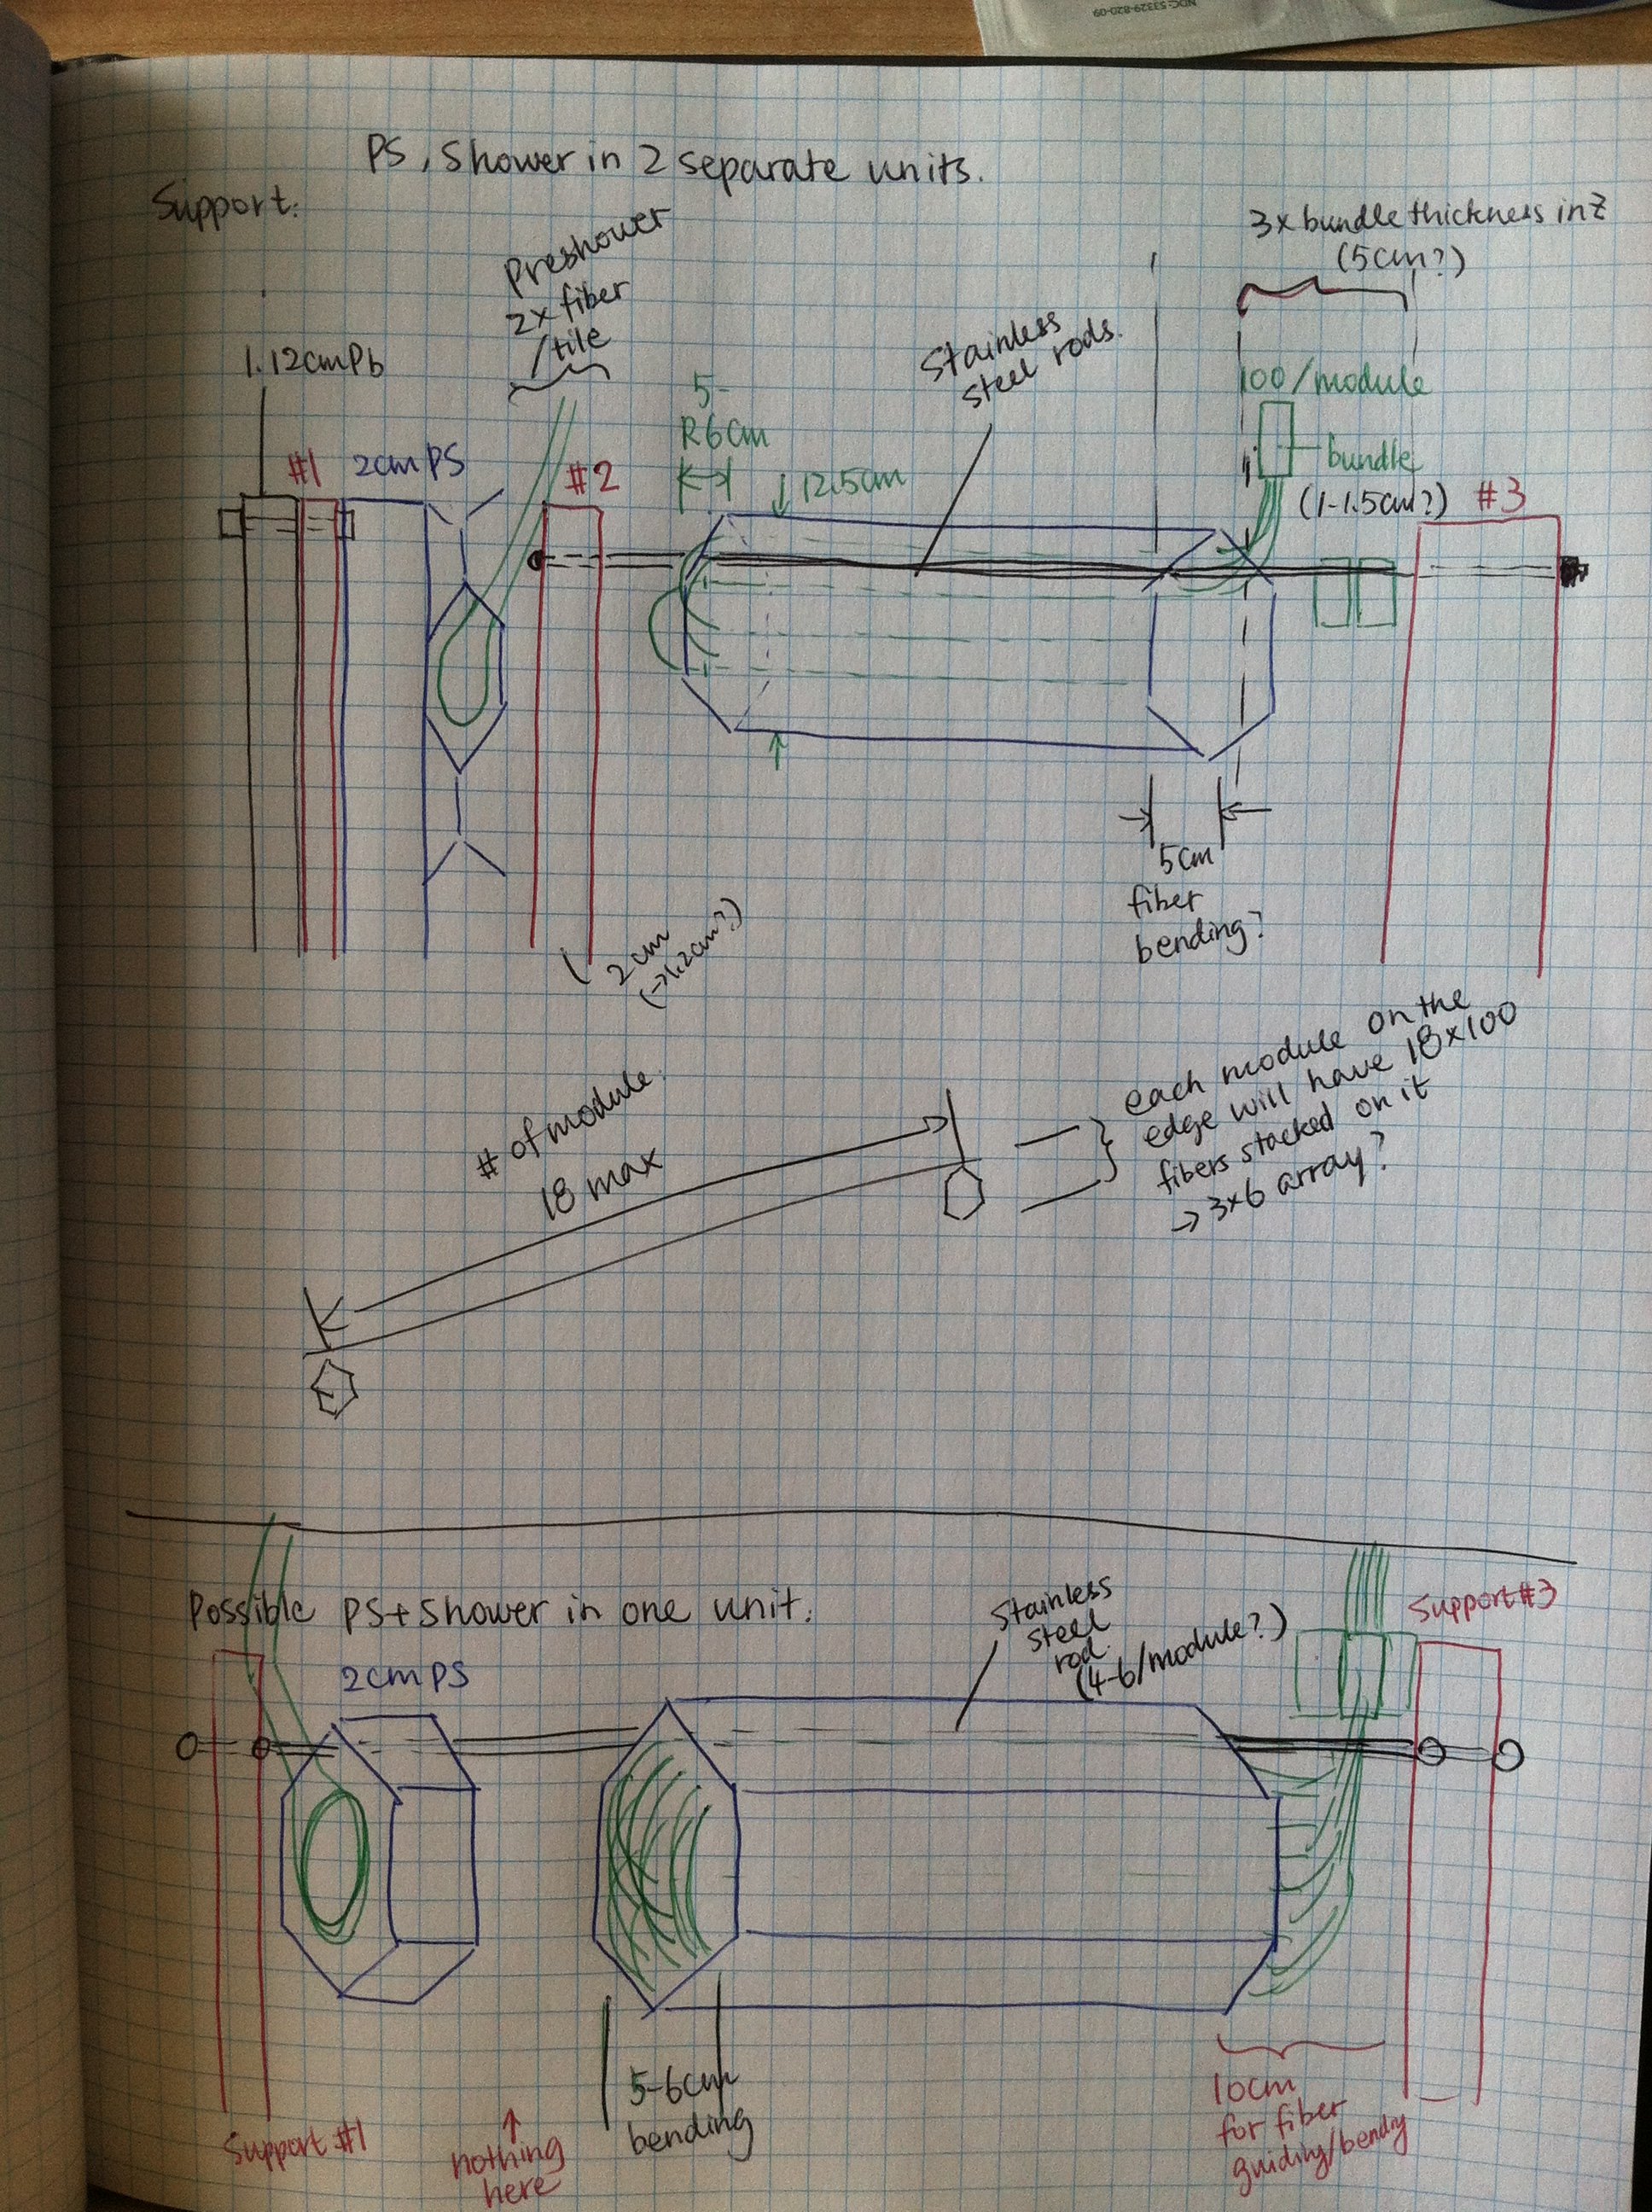 NDC: 53329-820-09
PS, Shower in 2 separate units.
Support:
Preshower
2x fiber
/tile
3x bundle thickness in Z
(5cm?)
1.12cm Pb
#1
2cm PS
#2
5-
R6cm
12.5cm
Stainless
steel rods.
100/module
bundle
(1-1.5cm?)
#3
5cm
fiber
bending?
2cm
(→1.2cm?)
# of module.
18 max
each module on the
edge will have 18x100
fibers stacked on it
→ 3x6 array?
Possible PS+Shower in one unit.
2cm PS
Stainless
steel
rod.
(4-6/module?)
Support #3
Support #1
nothing
here
5-6cm
bending
10cm
for fiber
guiding/bending